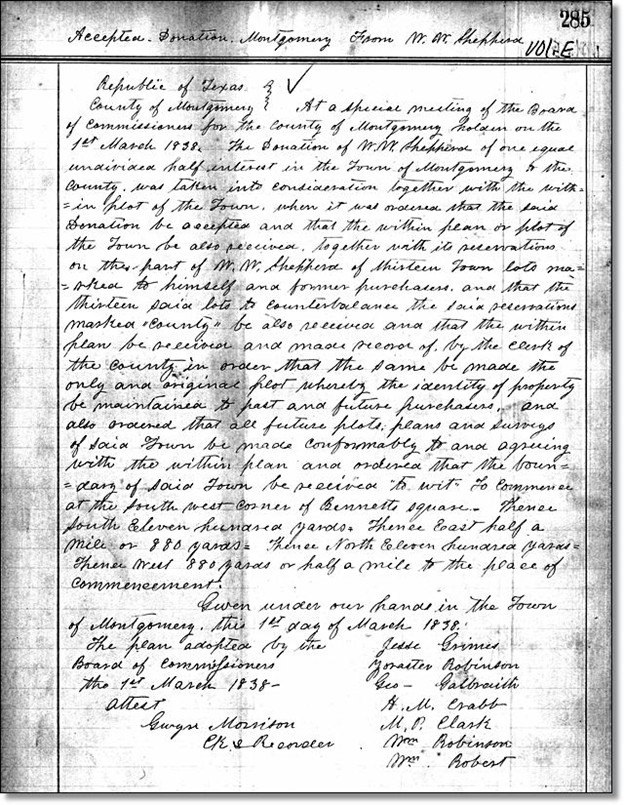 285
Accepted. Donation. Montgomery From W. W. Shepherd
VOL. E
Republic of Texas
County of Montgomery At a special meeting of the Board
of Commissioners for the County of Montgomery holden on the
1st March 1838. The Donation of W. W. Shepherd of one equal
undivided half interest in the Town of Montgomery to the
County. was taken into consideration together with the with=
=in plot of the Town. when it was ordered that the said
Donation be accepted and that the within plan or plot of
the Town be also received. together with its reservations
on the part of W. W. Shepherd of thirteen Town lots ma=
=rked to himself and former purchasers. and that the
thirteen said lots to counterbalance the said reservations
marked "County" be also received and that the within
plan be received and made record of, by the Clerk of
the County in order that the same be made the
only and original plot whereby the identity of property
be maintained to past and future purchasers, and
also ordered that all future plots, plans and surveys
of said Town be made conformably to and agreeing
with the within plan and ordered that the boun=
=dary of said Town be received "to wit" To Commence
at the south west corner of Bennetts square. Thence
South Eleven hundred yards= Thence East half a
mile or 880 yards= Thence North Eleven hundred yards=
Thence West 880 yards or half a mile to the place of
Commencement.
Given under our hands in the Town
of Montgomery. this 1st day of March 1838.
The plan adopted by the Jesse Grimes
Board of Commissioners Zoraster Robinson
the 1st March 1838- Geo- Galbraith
attest H. M. Crabb
Gwyn Morrison M. P. Clark
Ck & Recorder. Wm Robinson
Wm. Robert